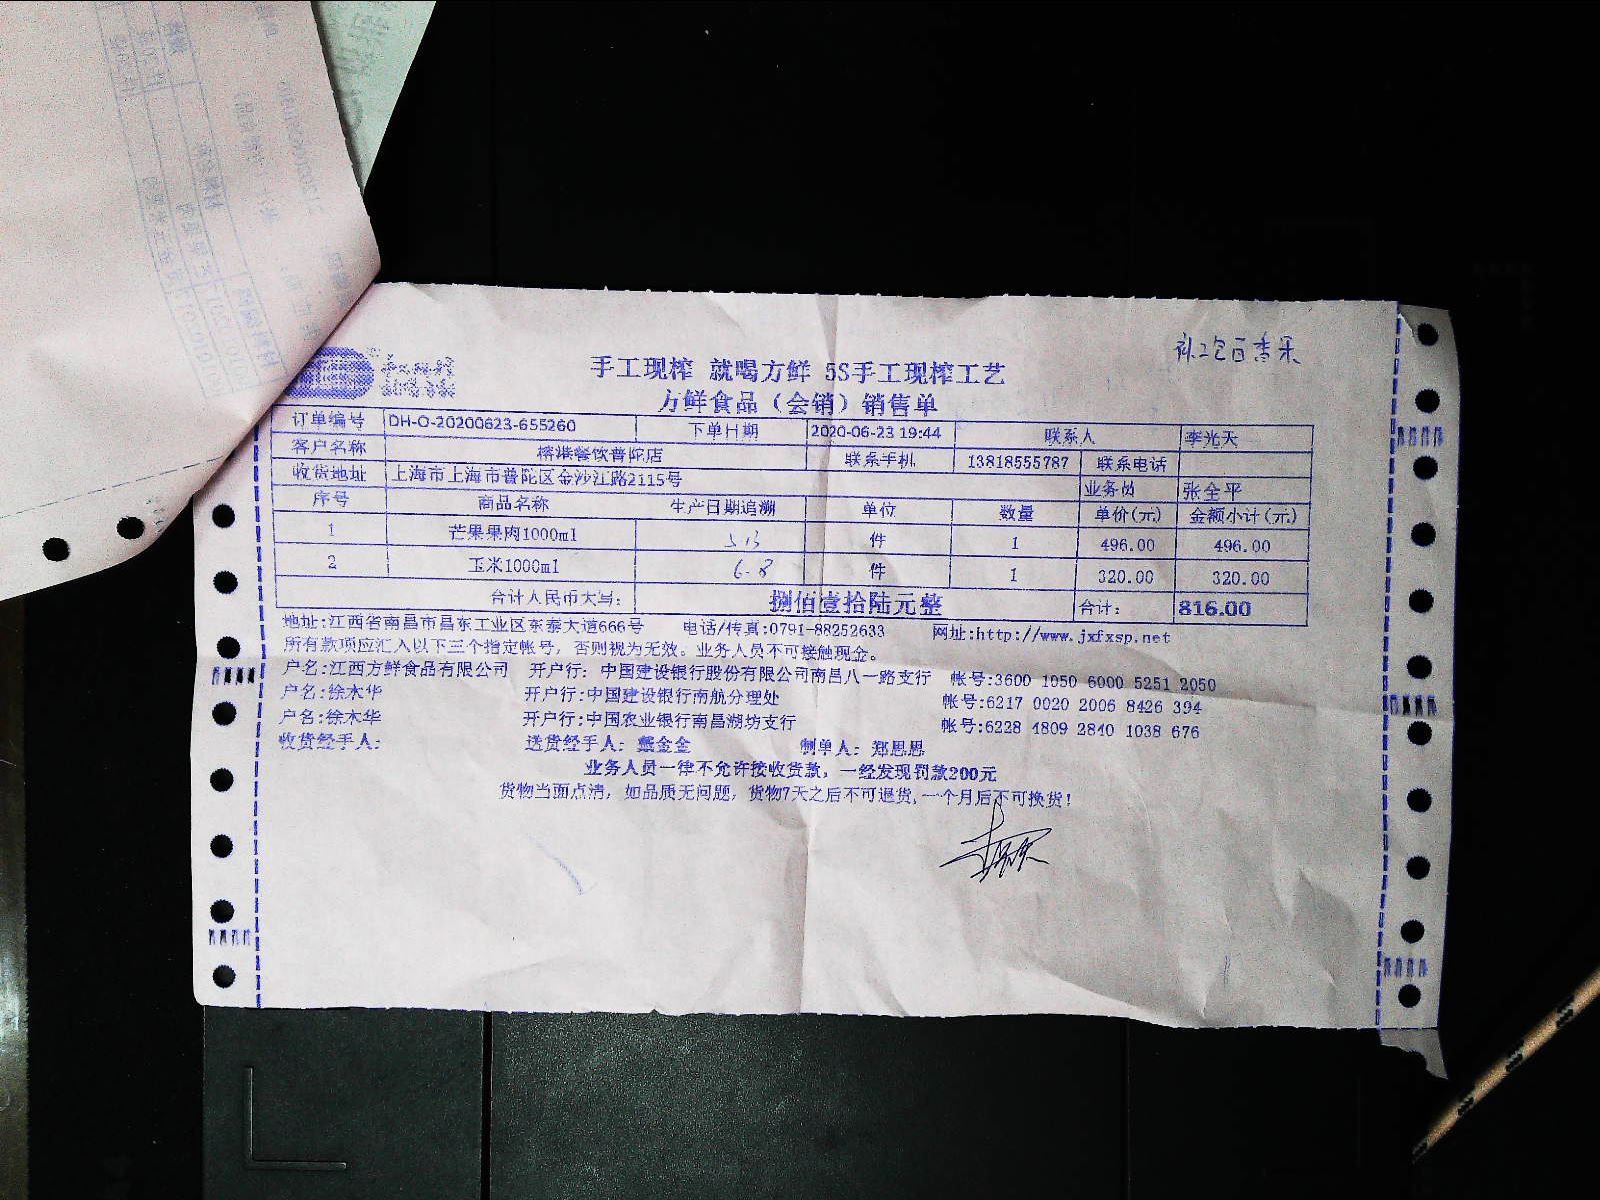 手工现榨 就喝方鲜 5S手工现榨工艺
方鲜食品（会销）销售单
订单编号 DH-O-20200623-655260 下单日期 2020-06-23 19:44 联系人 李光天
客户名称 榕港餐饮普陀店 联系手机 13818555787 联系电话
收货地址 上海市上海市普陀区金沙江路2115号 业务员 张全平
序号 商品名称 生产日期追溯 单位 数量 单价(元) 金额小计(元)
1 芒果果肉1000ml 件 1 496.00 496.00
2 玉米1000ml 6.8 件 1 320.00 320.00
合计人民币大写： 捌佰壹拾陆元整 合计： 816.00
地址:江西省南昌市昌东工业区东泰大道666号 电话/传真:0791-88252633 网址:http://www.jxfxsp.net
所有款项应汇入以下三个指定帐号，否则视为无效。业务人员不可接触现金。
户名:江西方鲜食品有限公司 开户行：中国建设银行股份有限公司南昌八一路支行 帐号:3600 1050 6000 5251 2050
户名:徐木华 开户行:中国建设银行南航分理处 帐号:6217 0020 2006 8426 394
户名:徐木华 开户行:中国农业银行南昌湖坊支行 帐号:6228 4809 2840 1038 676
收货经手人： 送货经手人：戴金金 制单人：郑思思
业务人员一律不允许接收货款，一经发现罚款200元
货物当面点清，如品质无问题，货物7天之后不可退货,一个月后不可换货！